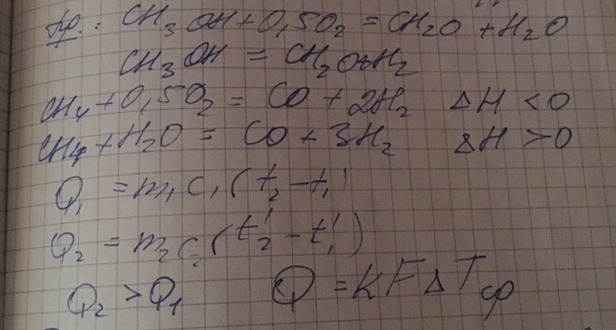 Пр.: CH₃OH + 0,5O₂ = CH₂O + H₂O
CH₃OH = CH₂O + H₂
CH₄ + 0,5O₂ = CO + 2H₂ ΔH < 0
CH₄ + H₂O = CO + 3H₂ ΔH > 0
Q₁ = m₁c₁(t₂ - t₁)
Q₂ = m₂c₂(t₂' - t₁')
Q₂ > Q₁ Q = KFΔTср